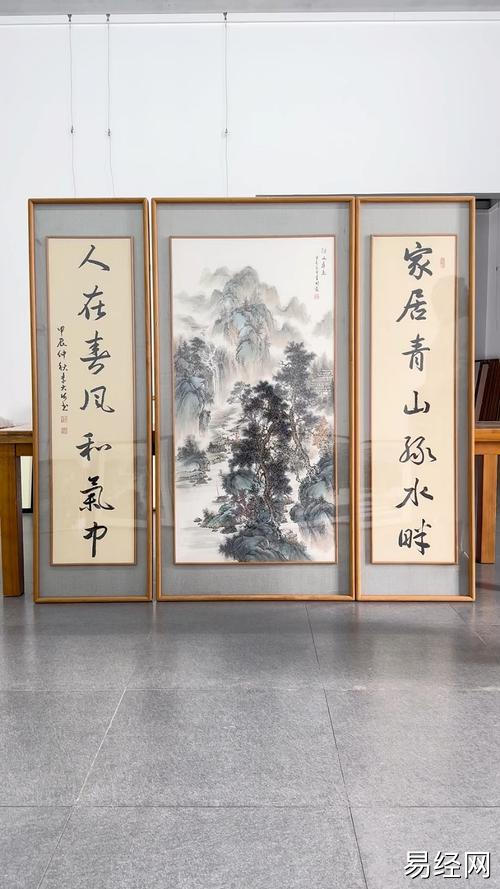 家居青山绿水畔
人在春风和氣中
甲辰仲秋
易经网